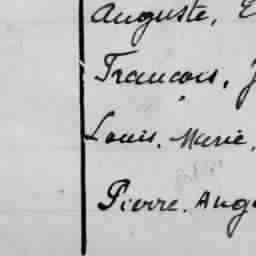 Auguste, E
Francois, J
Louis. Marie,
Pierre. Aug